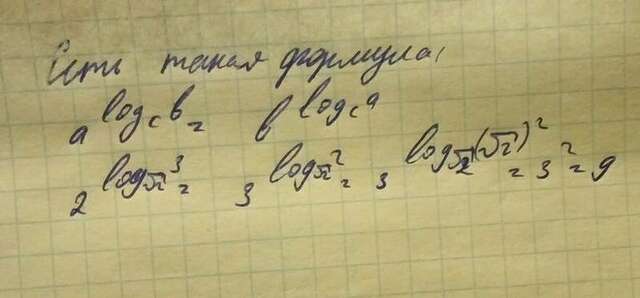 Есть такая формула:
a^{log_c b} = b^{log_c a}
2^{log_{√2} 3} = 3^{log_{√2} 2} = 3^{log_{√2} (√2)^2} = 3^2 = 9